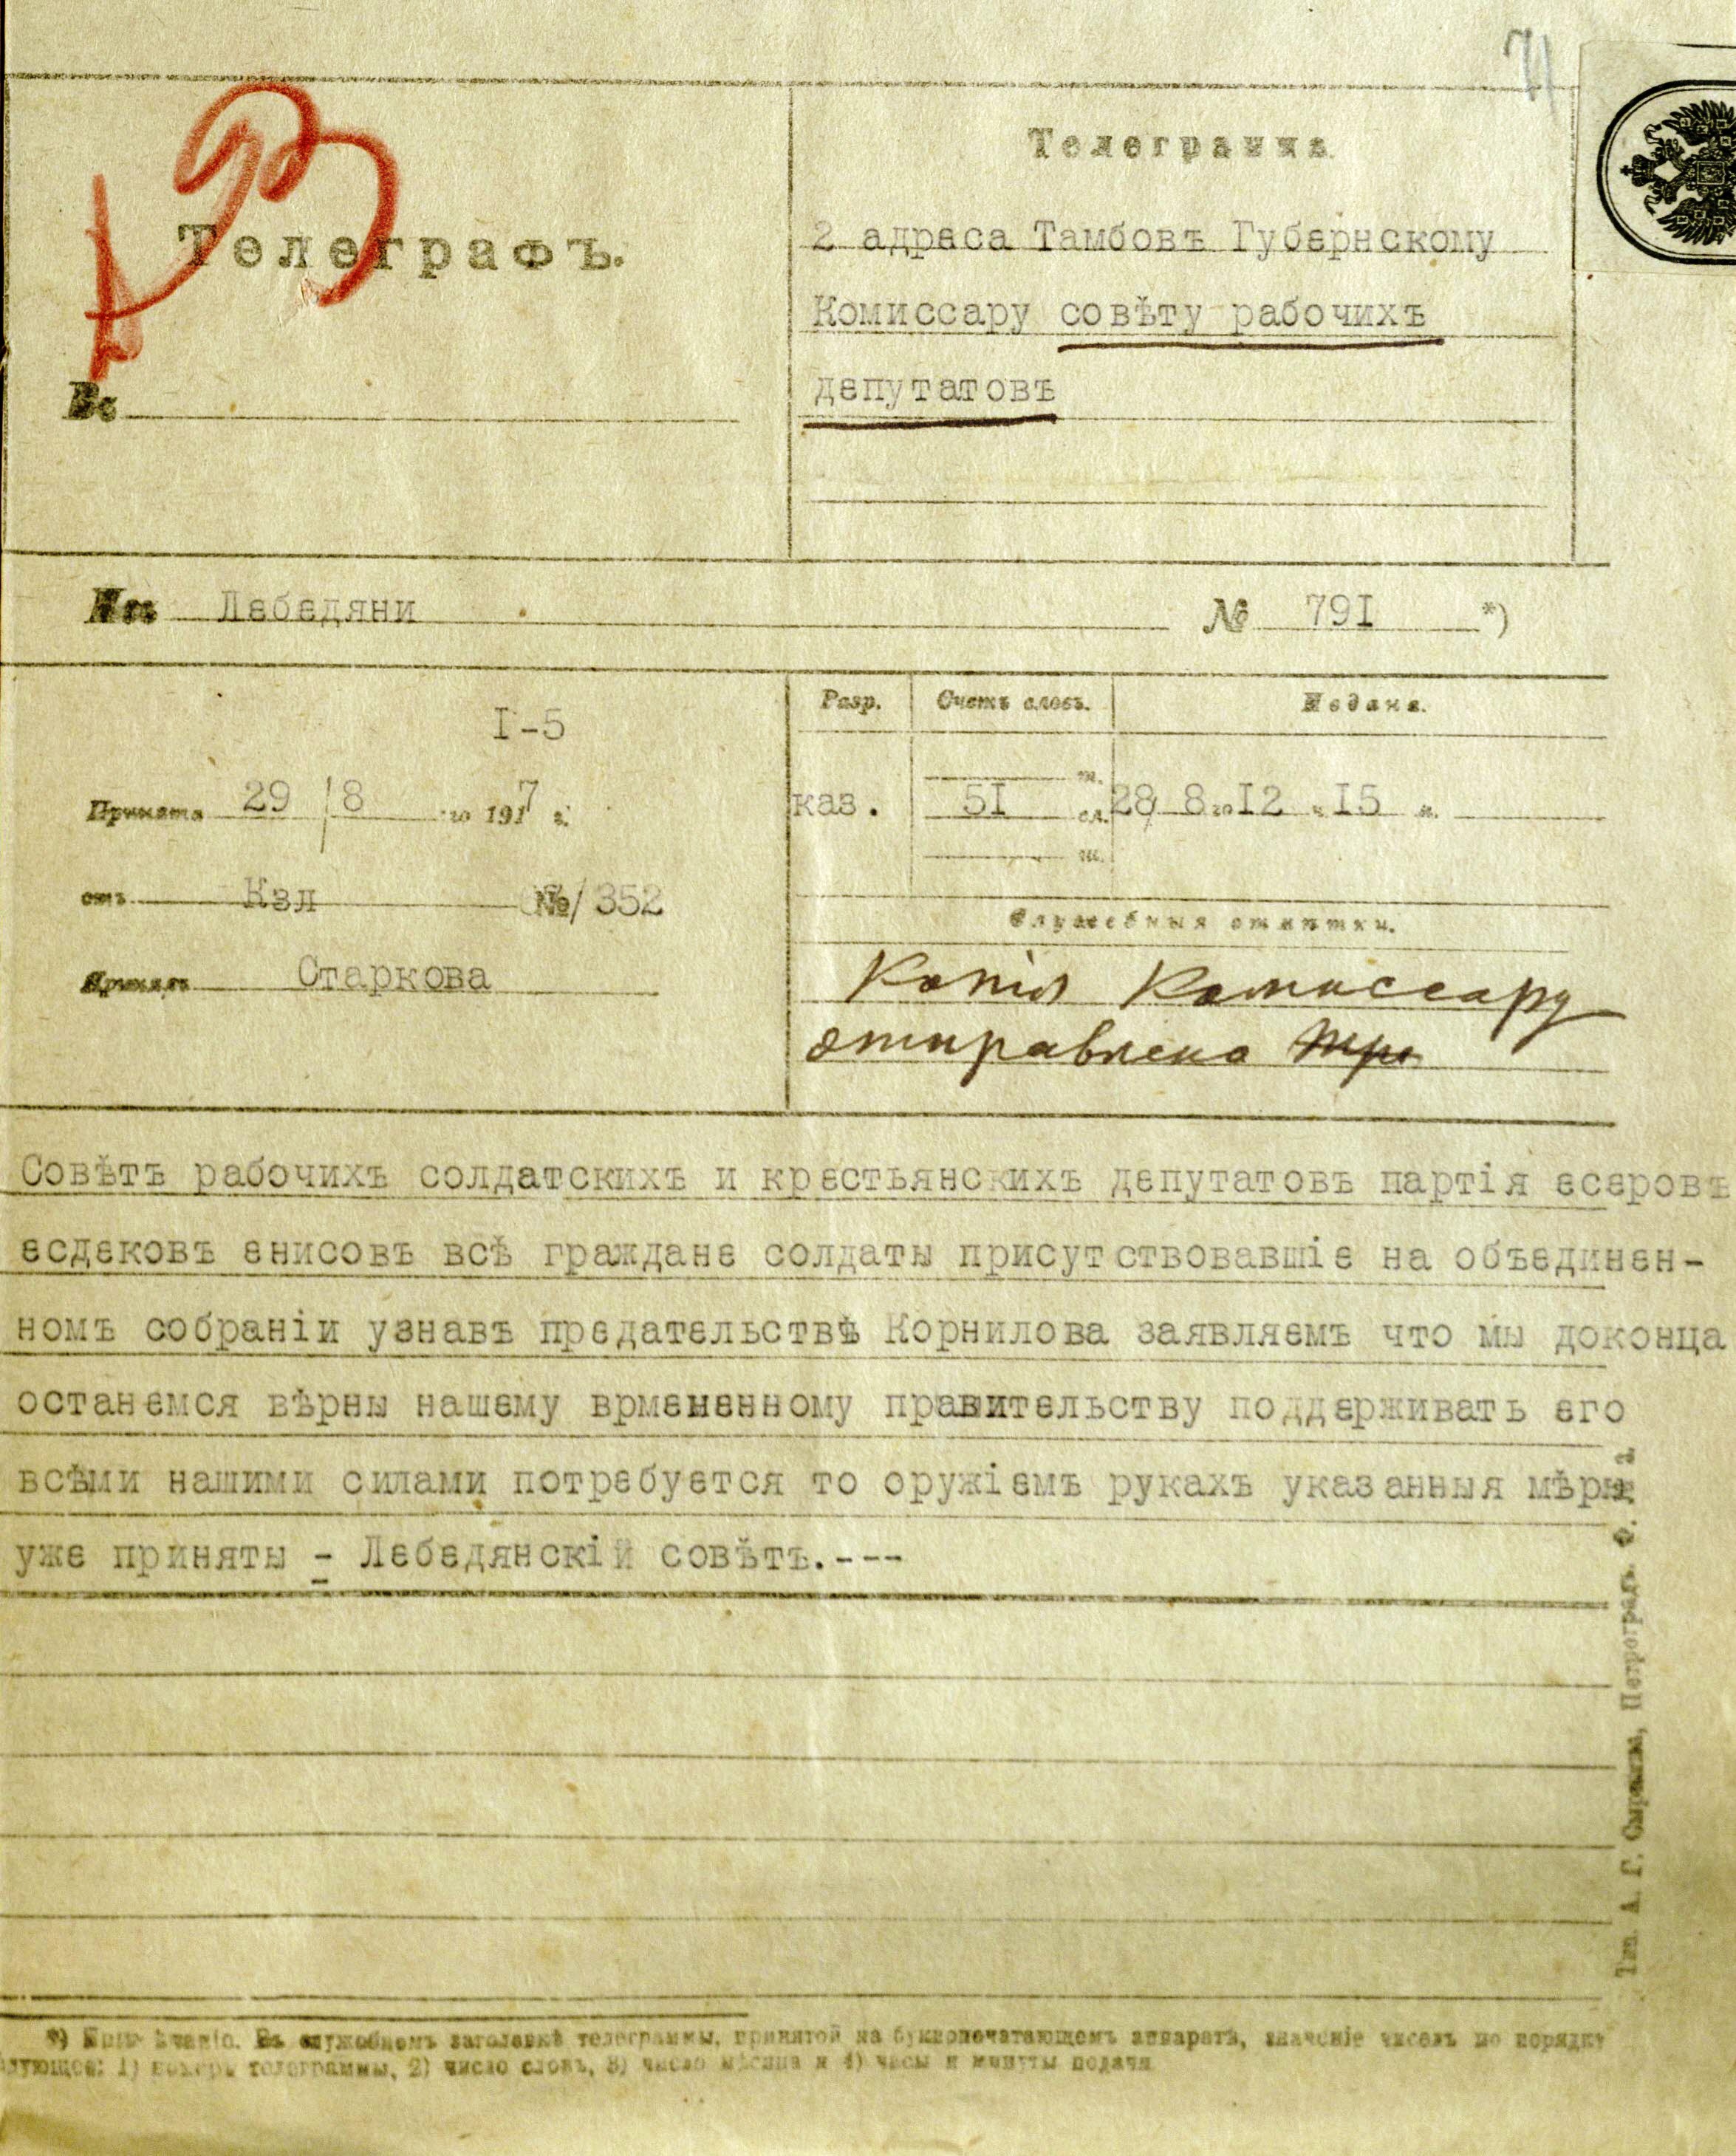 71
Телеграмма
193
Телеграфъ.
2 адреса Тамбовъ Губернскому
Комиссару совѣту рабочихъ
депутатовъ
Въ
Изъ Лебедяни № 79I *)
I-5
Разр. Счетъ словъ. Подана.
Принята 29/8 го 1917 г.
каз. 5I сл. 28/ 8 го I2 ч. I5 м.
отъ Кзл №/352
Служебныя отмѣтки.
Принялъ Старкова
Копія Комиссару
отправлена
Совѣтъ рабочихъ солдатскихъ и крестьянскихъ депутатовъ партія есеровъ
есдековъ енисовъ всѣ граждане солдаты присутствовавшіе на объединен-
номъ собраніи узнавъ предательствѣ Корнилова заявляемъ что мы доконца
останемся вѣрны нашему врмененному правительству поддерживать его
всѣми нашими силами потребуется то оружіемъ рукахъ указанныя мѣры
уже приняты - Лебедянскій совѣтъ.---
*) Примѣчаніе. Въ служебномъ заголовкѣ телеграммы, принятой на буквопечатающемъ аппаратѣ, значеніе чиселъ по порядку
дующее: 1) номеръ телеграммы, 2) число словъ, 3) число мѣсяца и 4) часы и минуты подачи
Тип. А. Г. Петроградъ.